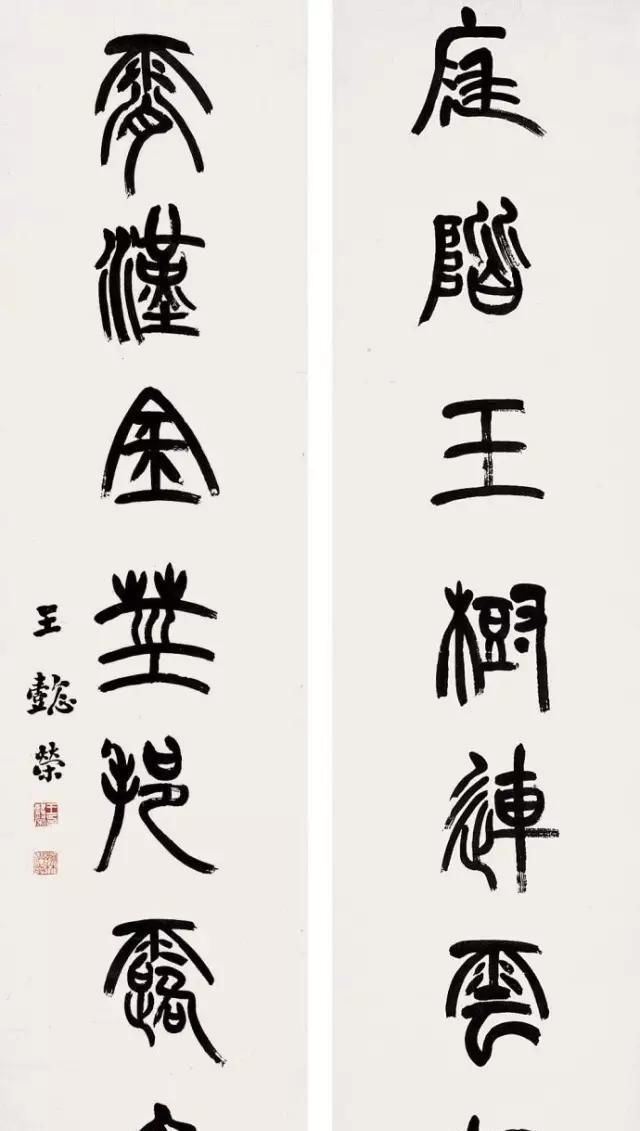 庭階玉樹連雲
霄漢金莖挹露
王懿榮